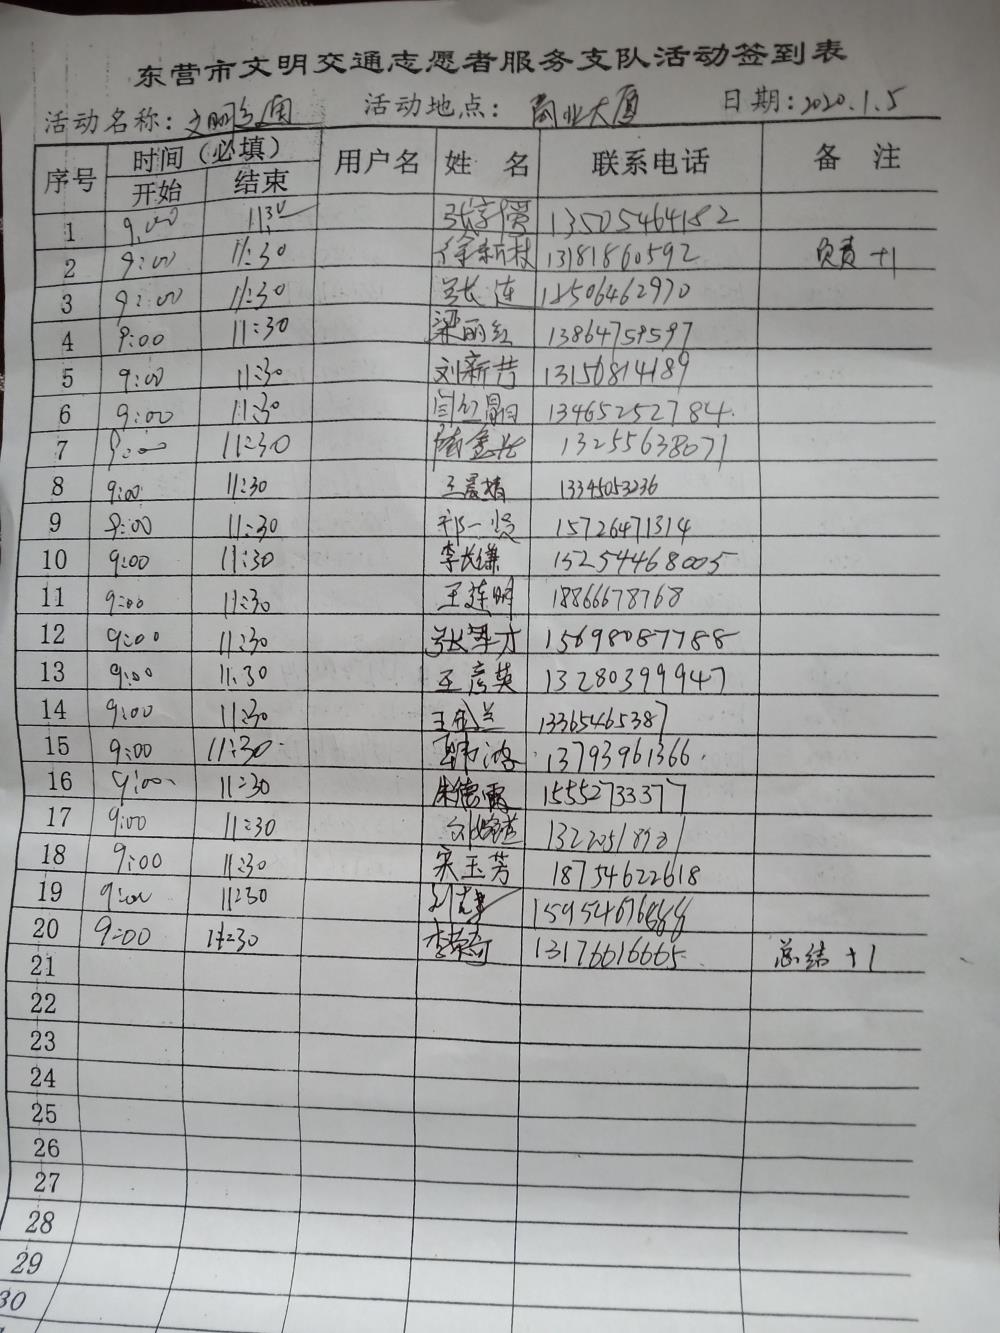 东营市文明交通志愿者服务支队活动签到表
活动名称：文明交通 活动地点：商业大厦 日期：2020.1.5
序号 时间（必填） 用户名 姓 名 联系电话 备 注
开始 结束
1 9:00 11:30 13505464182
2 9:00 11:30 徐新村 13181860592 负责+1
3 9:00 11:30 张连 12506462970
4 9:00 11:30 梁丽红 13864759597
5 9:00 11:30 刘新芳 13156814189
6 9:00 11:30 13465252784.
7 9:00 11:30 13255638071
8 9:00 11:30 王晨精 13345053236
9 9:00 11:30 祁一贤 15726471314
10 9:00 11:30 李长谦 15254468005
11 9:00 11:30 王连明 18866678768
12 9:00 11:30 15698087788
13 9:00 11:30 王彦英 13280399947
14 9:00 11:30 13365465387
15 9:00 11:30 13793961366.
16 9:00 11:30 朱德雨 15552733377
17 9:00 11:30
18 9:00 11:30 宋玉芳 18754622618
19 9:00 11:30
20 9:00 11:30 13176616665. 总结+1
21
22
23
24
25
26
27
28
29
30